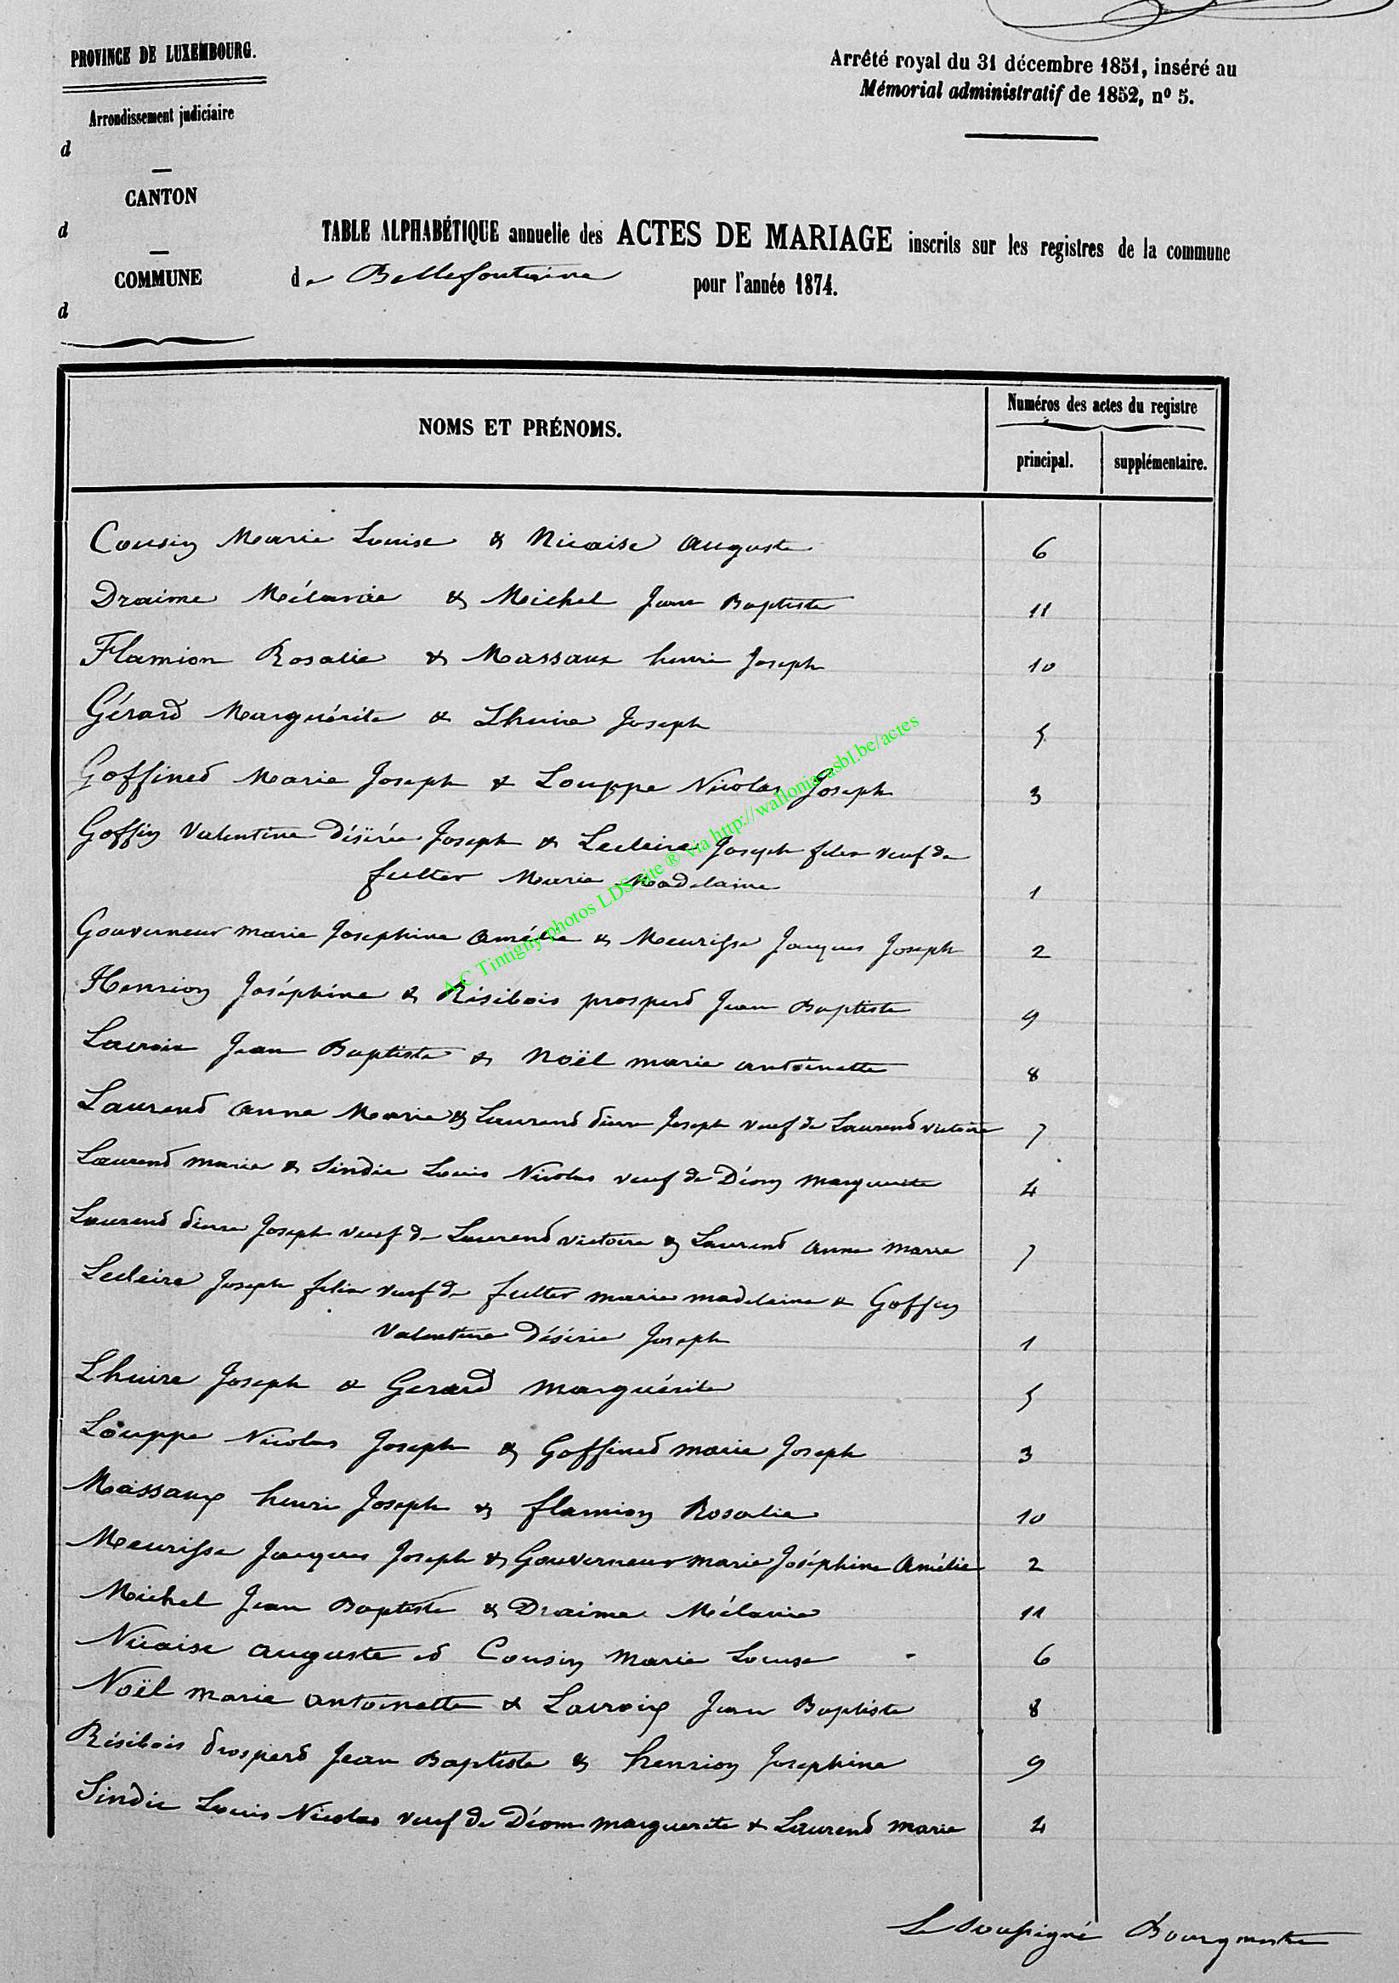 PROVINCE DE LUXEMBOURG.
Arrondissement judiciaire
d
CANTON
d
COMMUNE
d
Arrêté royal du 31 décembre 1851, inséré au
Mémorial administratif de 1852, nº 5.
TABLE ALPHABÉTIQUE annuelle des ACTES DE MARIAGE inscrits sur les registres de la commune
de Bellefontaine pour l'année 1874.
NOMS ET PRÉNOMS.
Numéros des actes du registre
principal. supplémentaire.
Cousin Marie Louise & Nicaise Auguste 6
Draime Mélanie & Michel Jean Baptiste 11
Flamion Rosalie & Massaux henri Joseph 10
Gérard Marguérite & Lhuire Joseph 5
Goffined Marie Joseph & Louppe Nicolas Joseph 3
Goffin Valentine Désirée Joseph & Lecleire Joseph felix veuf de
fulter Marie Madelaine 1
Gouverneur marie Josephine Amélie & Meurisse Jacques Joseph 2
Henrion Joséphine & Résibois prosperd Jean Baptiste 9
Lacroix Jean Baptiste & Noël marie antoinette 8
Laurend Anne Marie & Laurend pierre Joseph veuf de Laurend victoire 7
Laurend marie & Sindic Louis Nicolas veuf de Déom marguerite 4
Laurend pierre Joseph veuf de Laurend victoire & Laurend Anne Marie 7
Lecleire Joseph felix veuf de fulter marie madelaine & Goffin
Valentine Désirée Joseph 1
Lhuire Joseph & Gerard marguérite 5
Louppe Nicolas Joseph & Goffined marie Joseph 3
Massaux henri Joseph & flamion Rosalie 10
Meurisse Jacques Joseph & Gouverneur marie Joséphine Amélie 2
Michel Jean Baptiste & Draime Mélanie 11
Nicaise auguste et Cousin Marie Louise 6
Noël marie antoinette & Lacroix Jean Baptiste 8
Résibois prosperd Jean Baptiste & henrion Josephine 9
Sindic Louis Nicolas veuf de Déom marguerite & Laurend marie 4
Le soussigné Bourgmestre
A.C Tintigny photos LDS site ® via http://wallonia-asbl.be/actes